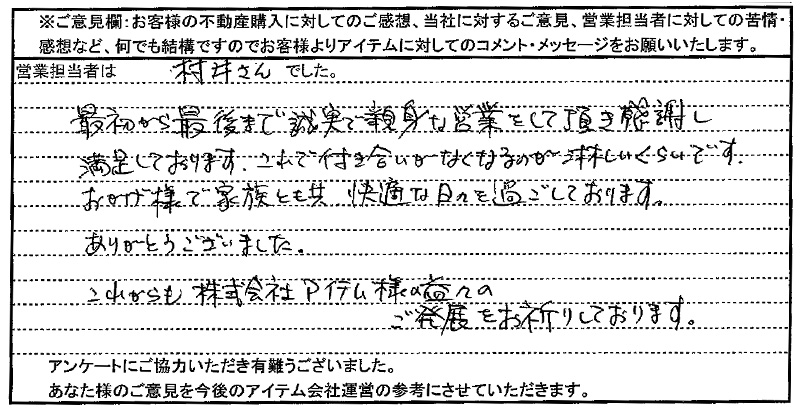 ※ご意見欄：お客様の不動産購入に対してのご感想、当社に対するご意見、営業担当者に対しての苦情・
感想など、何でも結構ですのでお客様よりアイテムに対してのコメント・メッセージをお願いいたします。
営業担当者は 村井さん でした。
最初から最後まで誠実で親身な営業をして頂き感謝し
満足しております。これで付き合いがなくなるのが淋しいくらいです。
おかげ様で家族とも共 快適な日々を過ごしております。
ありがとうございました。
これからも 株式会社アイテム様の益々の
ご発展をお祈りしております。
アンケートにご協力いただき有難うございました。
あなた様のご意見を今後のアイテム会社運営の参考にさせていただきます。